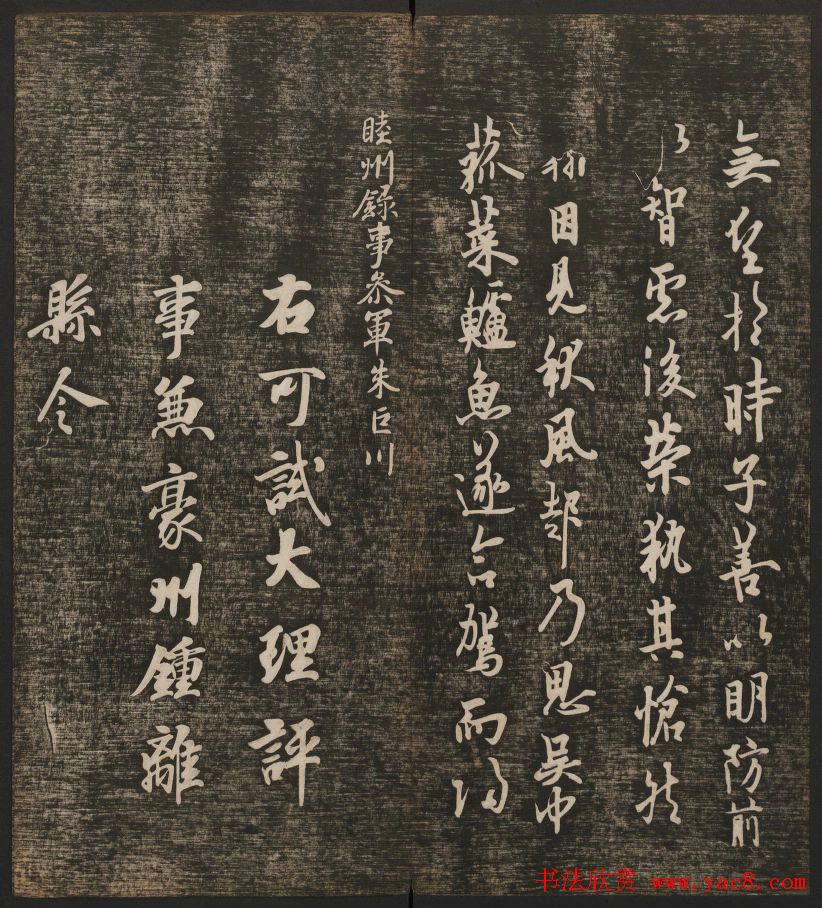 無望於時子善以明防前
以智慮後榮執其愴然
翰因見秋風起乃思吳中
菰菜鱸魚遂命駕而歸
睦州錄事參軍朱巨川
右可試大理評
事兼豪州鍾離
縣令
书法欣赏 www.yac8.com